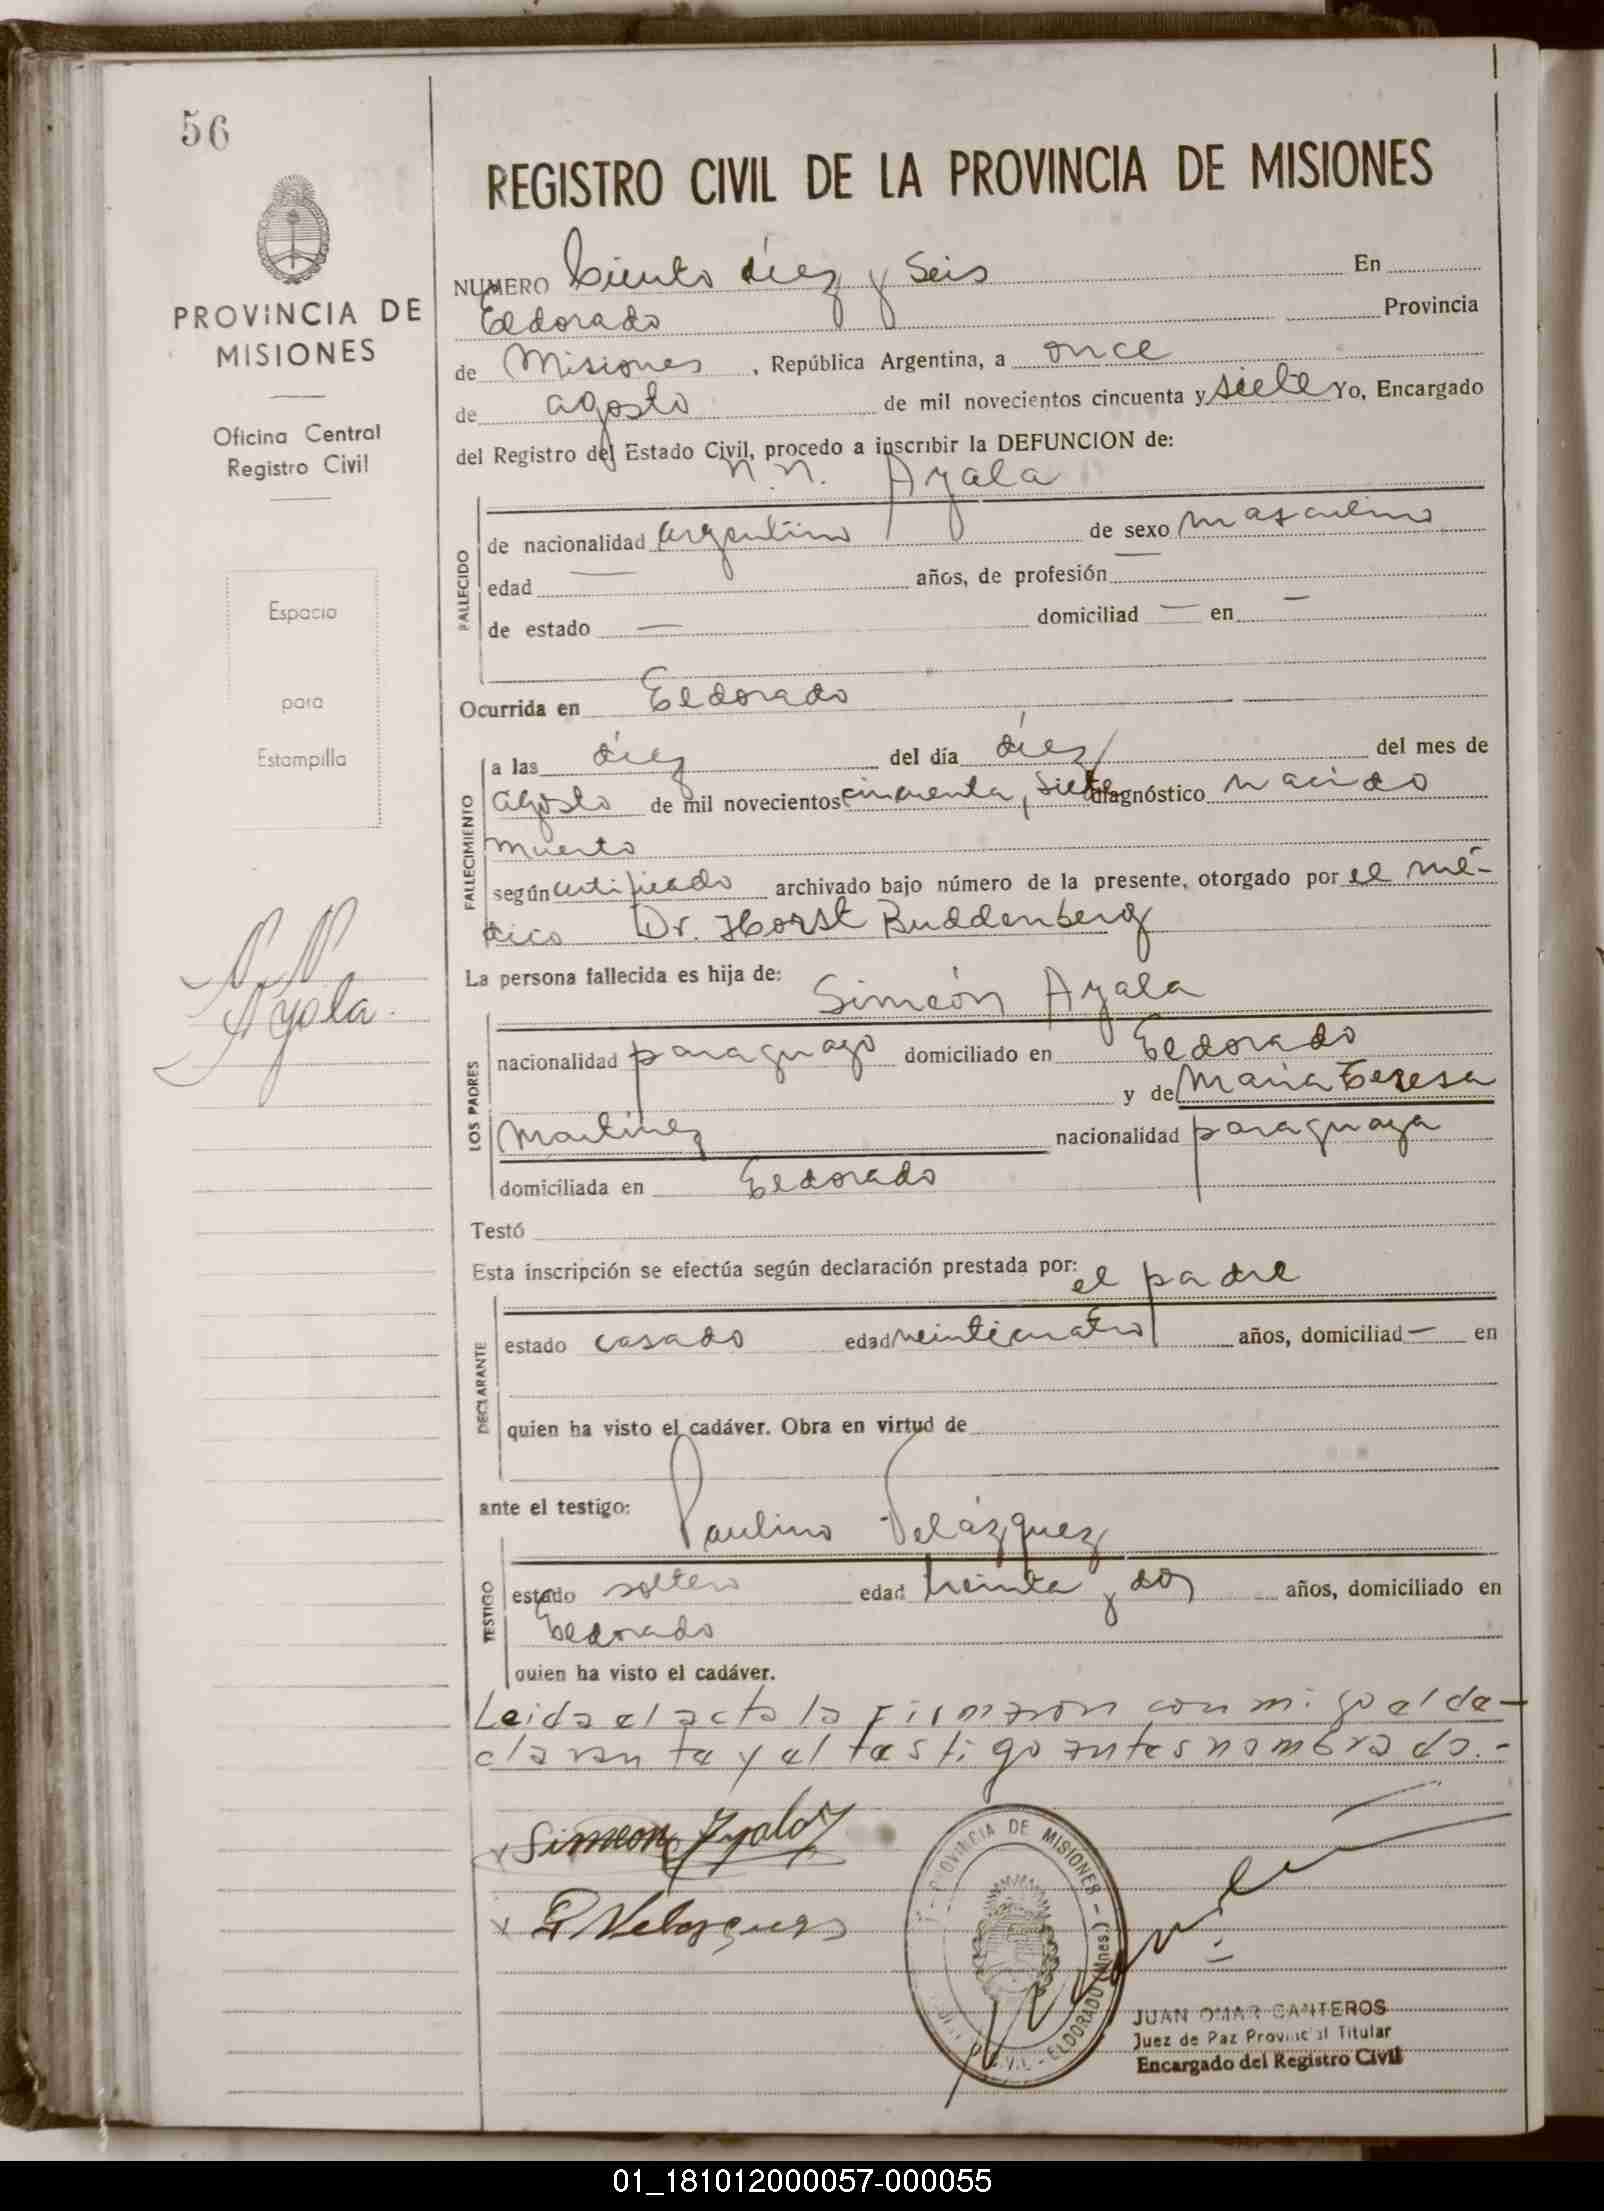 56
PROVINCIA DE
MISIONES
Oficina Central
Registro Civil
Espacio
para
Estampilla
N. N.
Ayala.
REGISTRO CIVIL DE LA PROVINCIA DE MISIONES
NUMERO Ciento diez y Seis En
Eldorado Provincia
de Misiones, República Argentina, a once
de agosto de mil novecientos cincuenta y siete Yo, Encargado
del Registro del Estado Civil, procedo a inscribir la DEFUNCION de:
n. n. Ayala
FALLECIDO
de nacionalidad argentino de sexo masculino
edad — años, de profesión —
de estado — domiciliad — en —
Ocurrida en Eldorado
FALLECIMIENTO
a las diez del día diez del mes de
agosto de mil novecientos cincuenta, siete diagnóstico nacido
muerto
según certificado archivado bajo número de la presente, otorgado por el mé-
dico Dr. Horst Buddenberg
La persona fallecida es hija de: Simeón Ayala
LOS PADRES
nacionalidad paraguayo domiciliado en Eldorado
y de María Teresa
Martínez nacionalidad paraguaya
domiciliada en Eldorado
Testó
Esta inscripción se efectúa según declaración prestada por: el padre
DECLARANTE
estado casado edad veinticuatro años, domiciliad — en
quien ha visto el cadáver. Obra en virtud de
ante el testigo: Paulino Velázquez
TESTIGO
estado soltero edad treinta y dos años, domiciliado en
Eldorado
quien ha visto el cadáver.
Leida el acta la firmaron conmigo el de-
clarante y el testigo antes nombrado.-
x Simeon Ayala
x P Velazquez
PROVINCIA DE MISIONES - ELDORADO (Mnes.)
JUAN OMAR CANTEROS
Juez de Paz Provincial Titular
Encargado del Registro Civil
01_181012000057-000055